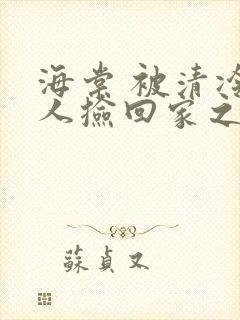 海棠 被清冷
人撿回家之
蘇貞又